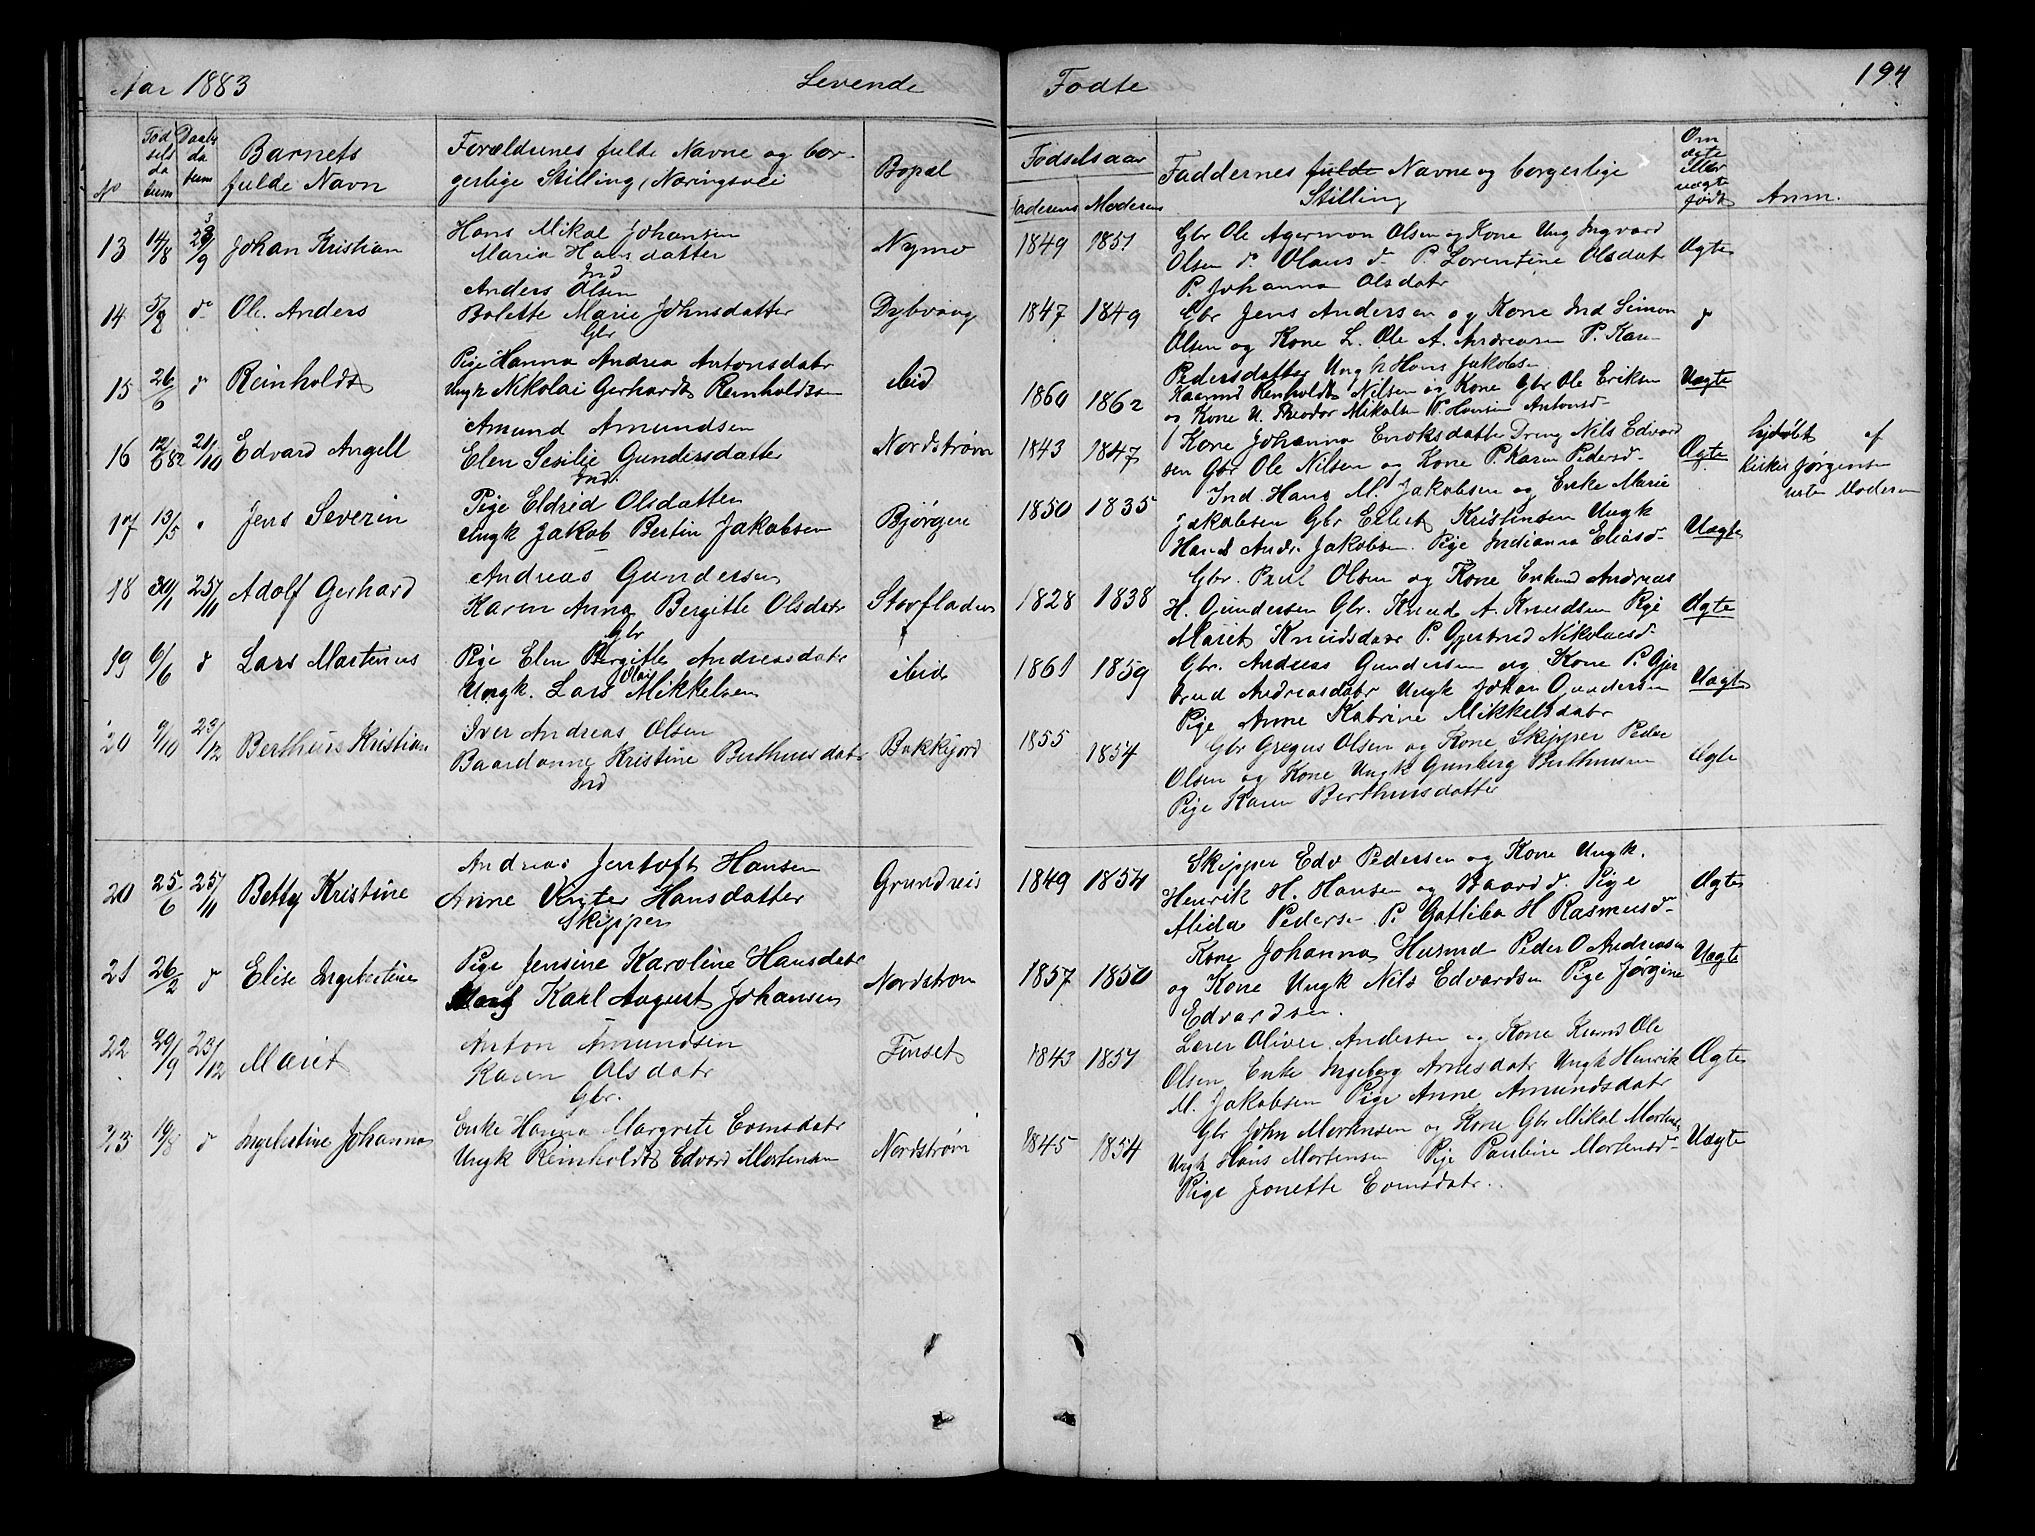 Aar 1883 Levende Födte 194
No Fødselsdatum Daabsdatum Barnets fulde Navn Forældrenes fulde Navne og borgerlige Stilling (Næringsvei Bopæl Fødselsaar Faderens Moderens Faddernes fulde Navne og borgerlige Stilling Om ægte eller uægte født Anm.
13 14/8 23/9 Johan Kristian
Hans Mikal Johansen
Maria Hansdatter
Ind
Nymo 1849 1851
Gbr Ole Agermon Olsen og Kone Ung Ingvard
Olsen do Olaus do P. Lorentine Olsdatr
P. Johanna Olsdatr
Ægte
14 5/8 do Ole Anders
Anders Olsen
Bolette Marie Johnsdatter
Gbr
Dybvaag 1847 1849
Gbr Jens Andersen og Kone Ind Simon
Olsen og Kone L. Ole A. Andreasen P. Karen
Pedersdatter Ungk Hans Jakobsen
do
15 26/6 do Reinholdt
Pige Hanna Andrea Antonsdatr
Ungk Nikolai Gerhardt Reinholdtsen
ibid 1860 1862
Kaarmd Reinholdt Nilsen og Kone Gbr Ole Eriksen
og Kone U. Theodor Mikalsen P. Hansine Antonsd-
Uægte
16 12/6 82 21/10 Edvard Angell
Amund Amundsen
Elen Sesilie Gundersdatter
Ind.
Nordstrøm 1843 1847
Kone Johanna Enoksdatter Dreng Nils Edvard
sen Gbr Ole Nilsen og Kone P. Karen Pedersd-
Ægte
hjdøbt af
Kirkes Jørgensen
17 13/5 " Jens Severin
Pige Eldrid Olsdatter
Ungk Jakob Bertin Jakobsen
Bjørgen 1850 1835
Ind. Hans M. Jakobsen og Enke Marie
Jakobsen Gbr Eilert Kristensen Ungk
Hans Andr. Jakobsen Pige Indianna Eliasd-
Uægte
18 30/1 25/11 Adolf Gerhard
Andreas Gundersen
Karen Anna Bergitte Olsdatr
Gbr
Storfladen 1828 1838
Gbr. Paul Olsen og Kone Enkemd Andreas
H. Gundersen Gbr. Knud A. Knudsen Pige
Maret Knudsdatr P. Gjertrud Nikolaisd-
Ægte
19 6/6 do Lars Martinus
Pige Elen Bergitte Andreasdatr
Ungk. Lars Olai Mikkelsen
ibid 1861 1859
Gbr. Andreas Gundersen og Kone P. Gjer
trud Andreasdatr Ungk Johan Gundersen
Pige Anne Katrine Mikkelsdatr
Uægte
20 9/10 23/12 Berthus Kristian
Iver Andreas Olsen
Baardonne Kristine Berthusdatr
Ind
Bakkejord 1855 1854
Gbr Gregus Olsen og Kone, Skipper Peder
Olsen og Kone Ungk Gunberg Berthusen
Pige Karen Berthusdatter
Ægte
20 25/6 25/11 Betty Kristine
Andreas Jentoft Hansen
Anne Hansdatter
Skipper
Grundreis 1849 1854
Skipper Edv Pedersen og Kone Ungk.
Henrik H. Hansen og Baard do. Pige
Alida Pedersen P. Gatliba H Rasmusd-
Ægte
21 26/2 do Elise Ingebertine
Pige Jensine Karoline Hansdatr
Karl August Johansen
Nordstrøm 1857 1850
Kone Johanna Husmd Peder O Andreasen
og Kone Ungk Nils Edvardsen Pige Jørgine
Edvardsen.
Uægte
22 29/9 23/12 Maret
Anton Amundsen
Karen Olsdatr
Gbr.
Finset 1843 1857
Lærer Oliver Andersen og Kone Ole
Olsen Enke Ingeberg Arnesdatr Ungk Henrik
M. Jakobsen Pige Anne Amundsdatr
Ægte
23 19/8 do Ingebertine Johanna
Enke Hanna Margrete Eomsdatr
Ungk Reinholdt Edvard Mortensen
Nordstrøm 1845 1854
Gbr John Mortensen og Kone Gbr Mikal Mortens
Ungk Hans Mortensen Pige Pauline Mortensd-
Pige Jonette Eomsdatr.
Uægte